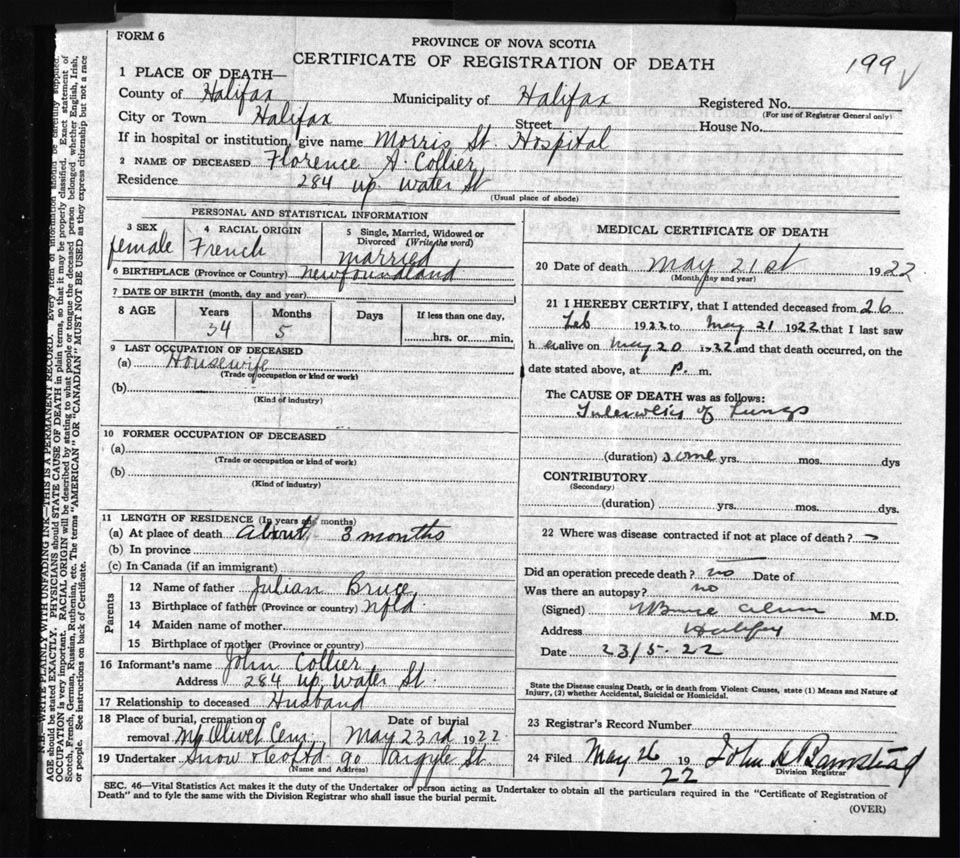 FORM 6
PROVINCE OF NOVA SCOTIA
CERTIFICATE OF REGISTRATION OF DEATH
199 √
1 PLACE OF DEATH—
County of Halifax Municipality of Halifax Registered No.
(For use of Registrar General only)
City or Town Halifax Street House No.
If in hospital or institution, give name Morris St. Hospital
2 NAME OF DECEASED Florence A. Collier
Residence 284 up. Water St
(Usual place of abode)
PERSONAL AND STATISTICAL INFORMATION
3 SEX female
4 RACIAL ORIGIN French
5 Single, Married, Widowed or Divorced (Write the word) married
6 BIRTHPLACE (Province or Country) Newfoundland
7 DATE OF BIRTH (month, day and year)
8 AGE Years Months Days If less than one day,
34 5 hrs. or min.
9 LAST OCCUPATION OF DECEASED
(a) Housewife
(Trade or occupation or kind or work)
(b)
(Kind of industry)
10 FORMER OCCUPATION OF DECEASED
(a)
(Trade or occupation or kind of work)
(b)
(Kind of industry)
11 LENGTH OF RESIDENCE (In years and months)
(a) At place of death about 3 months
(b) In province
(c) In Canada (if an immigrant)
Parents
12 Name of father Julian Bruce
13 Birthplace of father (Province or country) Nfld.
14 Maiden name of mother
15 Birthplace of mother (Province or country)
16 Informant's name John Collier
Address 284 up. Water St.
17 Relationship to deceased Husband
18 Place of burial, cremation or removal Mt Olivet Cem. Date of burial May 23rd 1922
19 Undertaker Snow & Co Ltd 90 Argyle St.
(Name and Address)
MEDICAL CERTIFICATE OF DEATH
20 Date of death May 21st 1922
(Month, day and year)
21 I HEREBY CERTIFY, that I attended deceased from 26
Feb 1922 to May 21 1922 that I last saw
h er alive on May 20 1922 and that death occurred, on the
date stated above, at P. m.
The CAUSE OF DEATH was as follows:
Tuberculosis of Lungs
(duration) some yrs. mos. dys
CONTRIBUTORY
(Secondary)
(duration) yrs. mos. dys.
22 Where was disease contracted if not at place of death? –
Did an operation precede death? no Date of
Was there an autopsy? no
(Signed) M.D.
Address Halifax
Date 23/5.22
State the Disease causing Death, or in death from Violent Causes, state (1) Means and Nature of
Injury, (2) whether Accidental, Suicidal or Homicidal.
23 Registrar's Record Number
24 Filed May 26 1922 John
Division Registrar
SEC. 46—Vital Statistics Act makes it the duty of the Undertaker or person acting as Undertaker to obtain all the particulars required in the "Certificate of Registration of
Death" and to fyle the same with the Division Registrar who shall issue the burial permit.
(OVER)
N.B.—WRITE PLAINLY WITH UNFADING INK—THIS IS A PERMANENT RECORD. Every item of information should be carefully supplied.
AGE should be stated EXACTLY. PHYSICIANS should STATE CAUSE OF DEATH in plain terms, so that it may be properly classified. Exact statement of
OCCUPATION is very important. RACIAL ORIGIN will be described by stating to what people or tongue the deceased person belonged whether English, Irish,
Scotch, French, German, Russian, Ruthenian, etc. The terms "AMERICAN" OR "CANADIAN" MUST NOT BE USED as they express citizenship but not a race
or people. See instructions on back of Certificate.